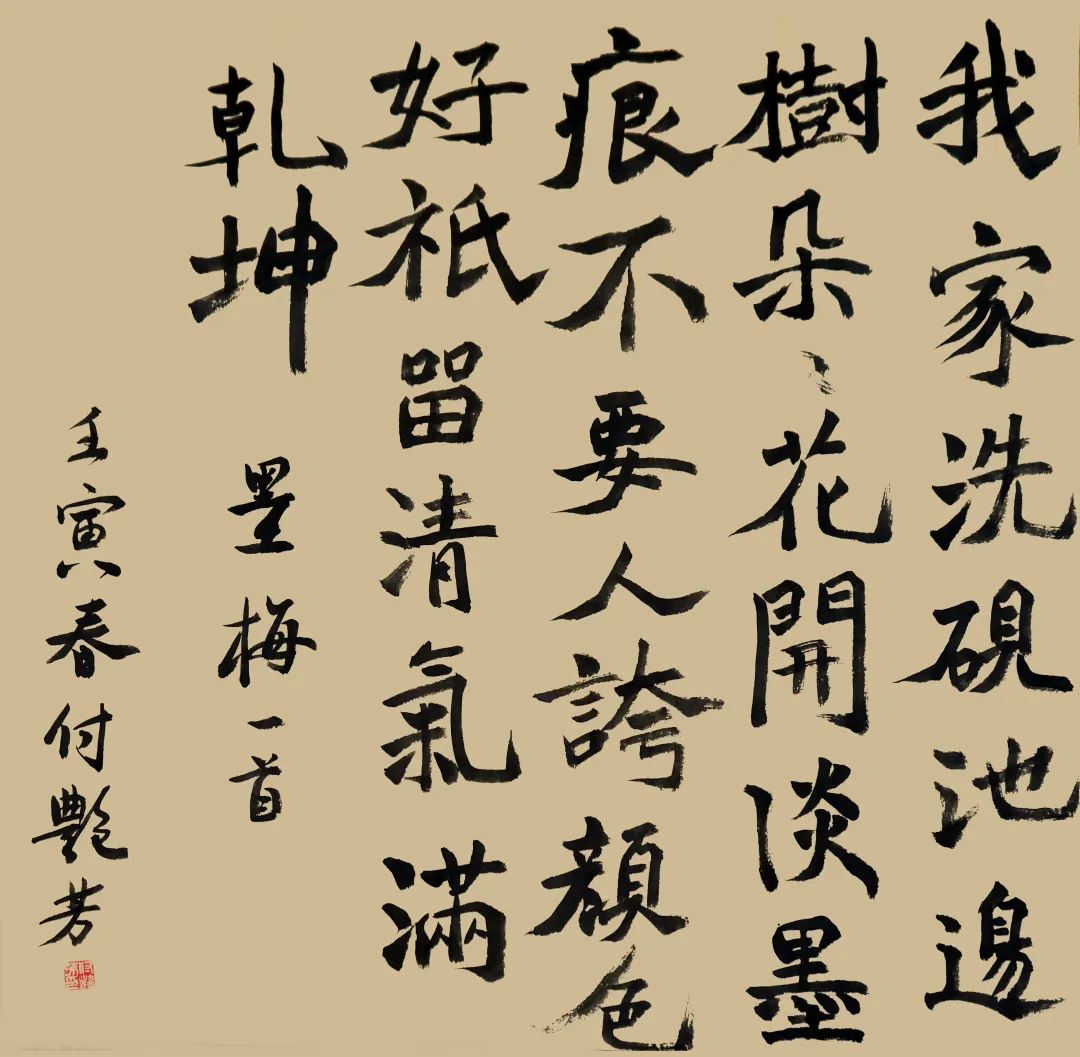 我家洗硯池邊
樹朵〻花開淡墨
痕不要人誇顏色
好祇留清氣滿
乾坤
墨梅一首
壬寅春付艷芳